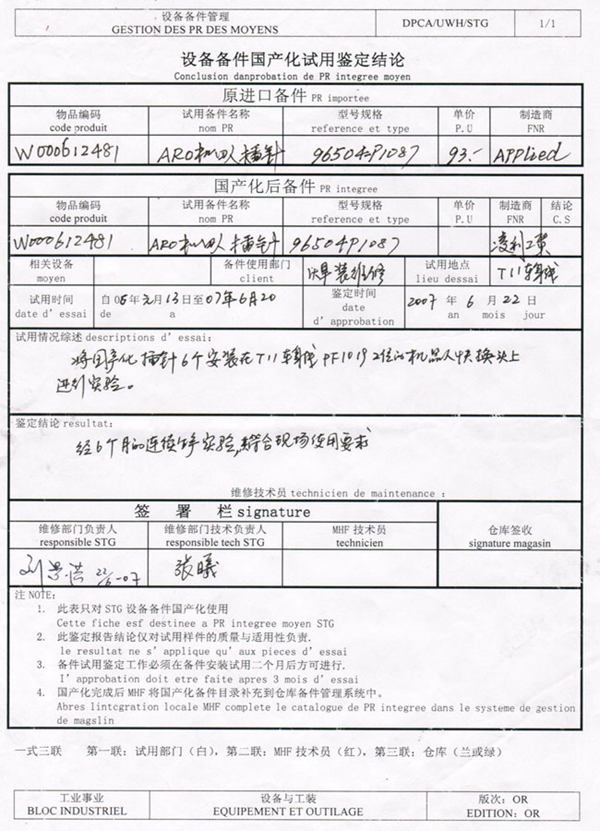 设备备件管理
GESTION DES PR DES MOYENS
DPCA/UWH/STG
1/1
设备备件国产化试用鉴定结论
Conclusion danprobation de PR integree moyen
原进口备件 PR importee
物品编码 试用备件名称 型号规格 单价 制造商
code produit nom PR reference et type P.U FNR
W000612481 ARO机器人插针 96504P1087 93.- APPlied
国产化后备件 PR integree
物品编码 试用备件名称 型号规格 单价 制造商 结论
code produit nom PR reference et type P.U FNR C.S
W000612481 ARO机器人插针 96504P1087 凌利工贸
相关设备 备件使用部门 焊装维修 试用地点 T11车身线
moyen client lieu dessai
试用时间 自06年元月13日至07年6月20 鉴定时间 2007 年 6 月 22 日
date d'essai de a date d'approbation an mois jour
试用情况综述 descriptions d'essai:
将国产化插针6个安装在T11车身线PF1019 2位的机器人快换头上
进行实验。
鉴定结论 resultat:
经6个月的连续 实验,符合现场使用要求
维修技术员 technicien de maintenance :
签 署 栏 signature
维修部门负责人 维修部门技术负责人 MHF 技术员 仓库签收
responsible STG responsible tech STG technicien signature magasin
22/6-07 张曦
注 NOTE:
1. 此表只对 STG 设备备件国产化使用
Cette fiche esf destinee a PR integree moyen STG
2. 此鉴定报告结论仅对试用样件的质量与适用性负责.
le resultat ne s'applique qu'aux pieces d'essai
3. 备件试用鉴定工作必须在备件安装试用二个月后方可进行.
I'approbation doit etre faite apres 3 mois d'essai
4. 国产化完成后 MHF 将国产化备件目录补充到仓库备件管理系统中。
Abres lintcgration locale MHF complete le catalogue de PR integree dans le systeme de gestion
de magslin
一式三联 第一联: 试用部门（白）, 第二联: MHF 技术员（红）, 第三联: 仓库（兰或绿）
工业事业 设备与工装 版次: OR
BLOC INDUSTRIEL EQUIPEMENT ET OUTILAGE EDITION: OR